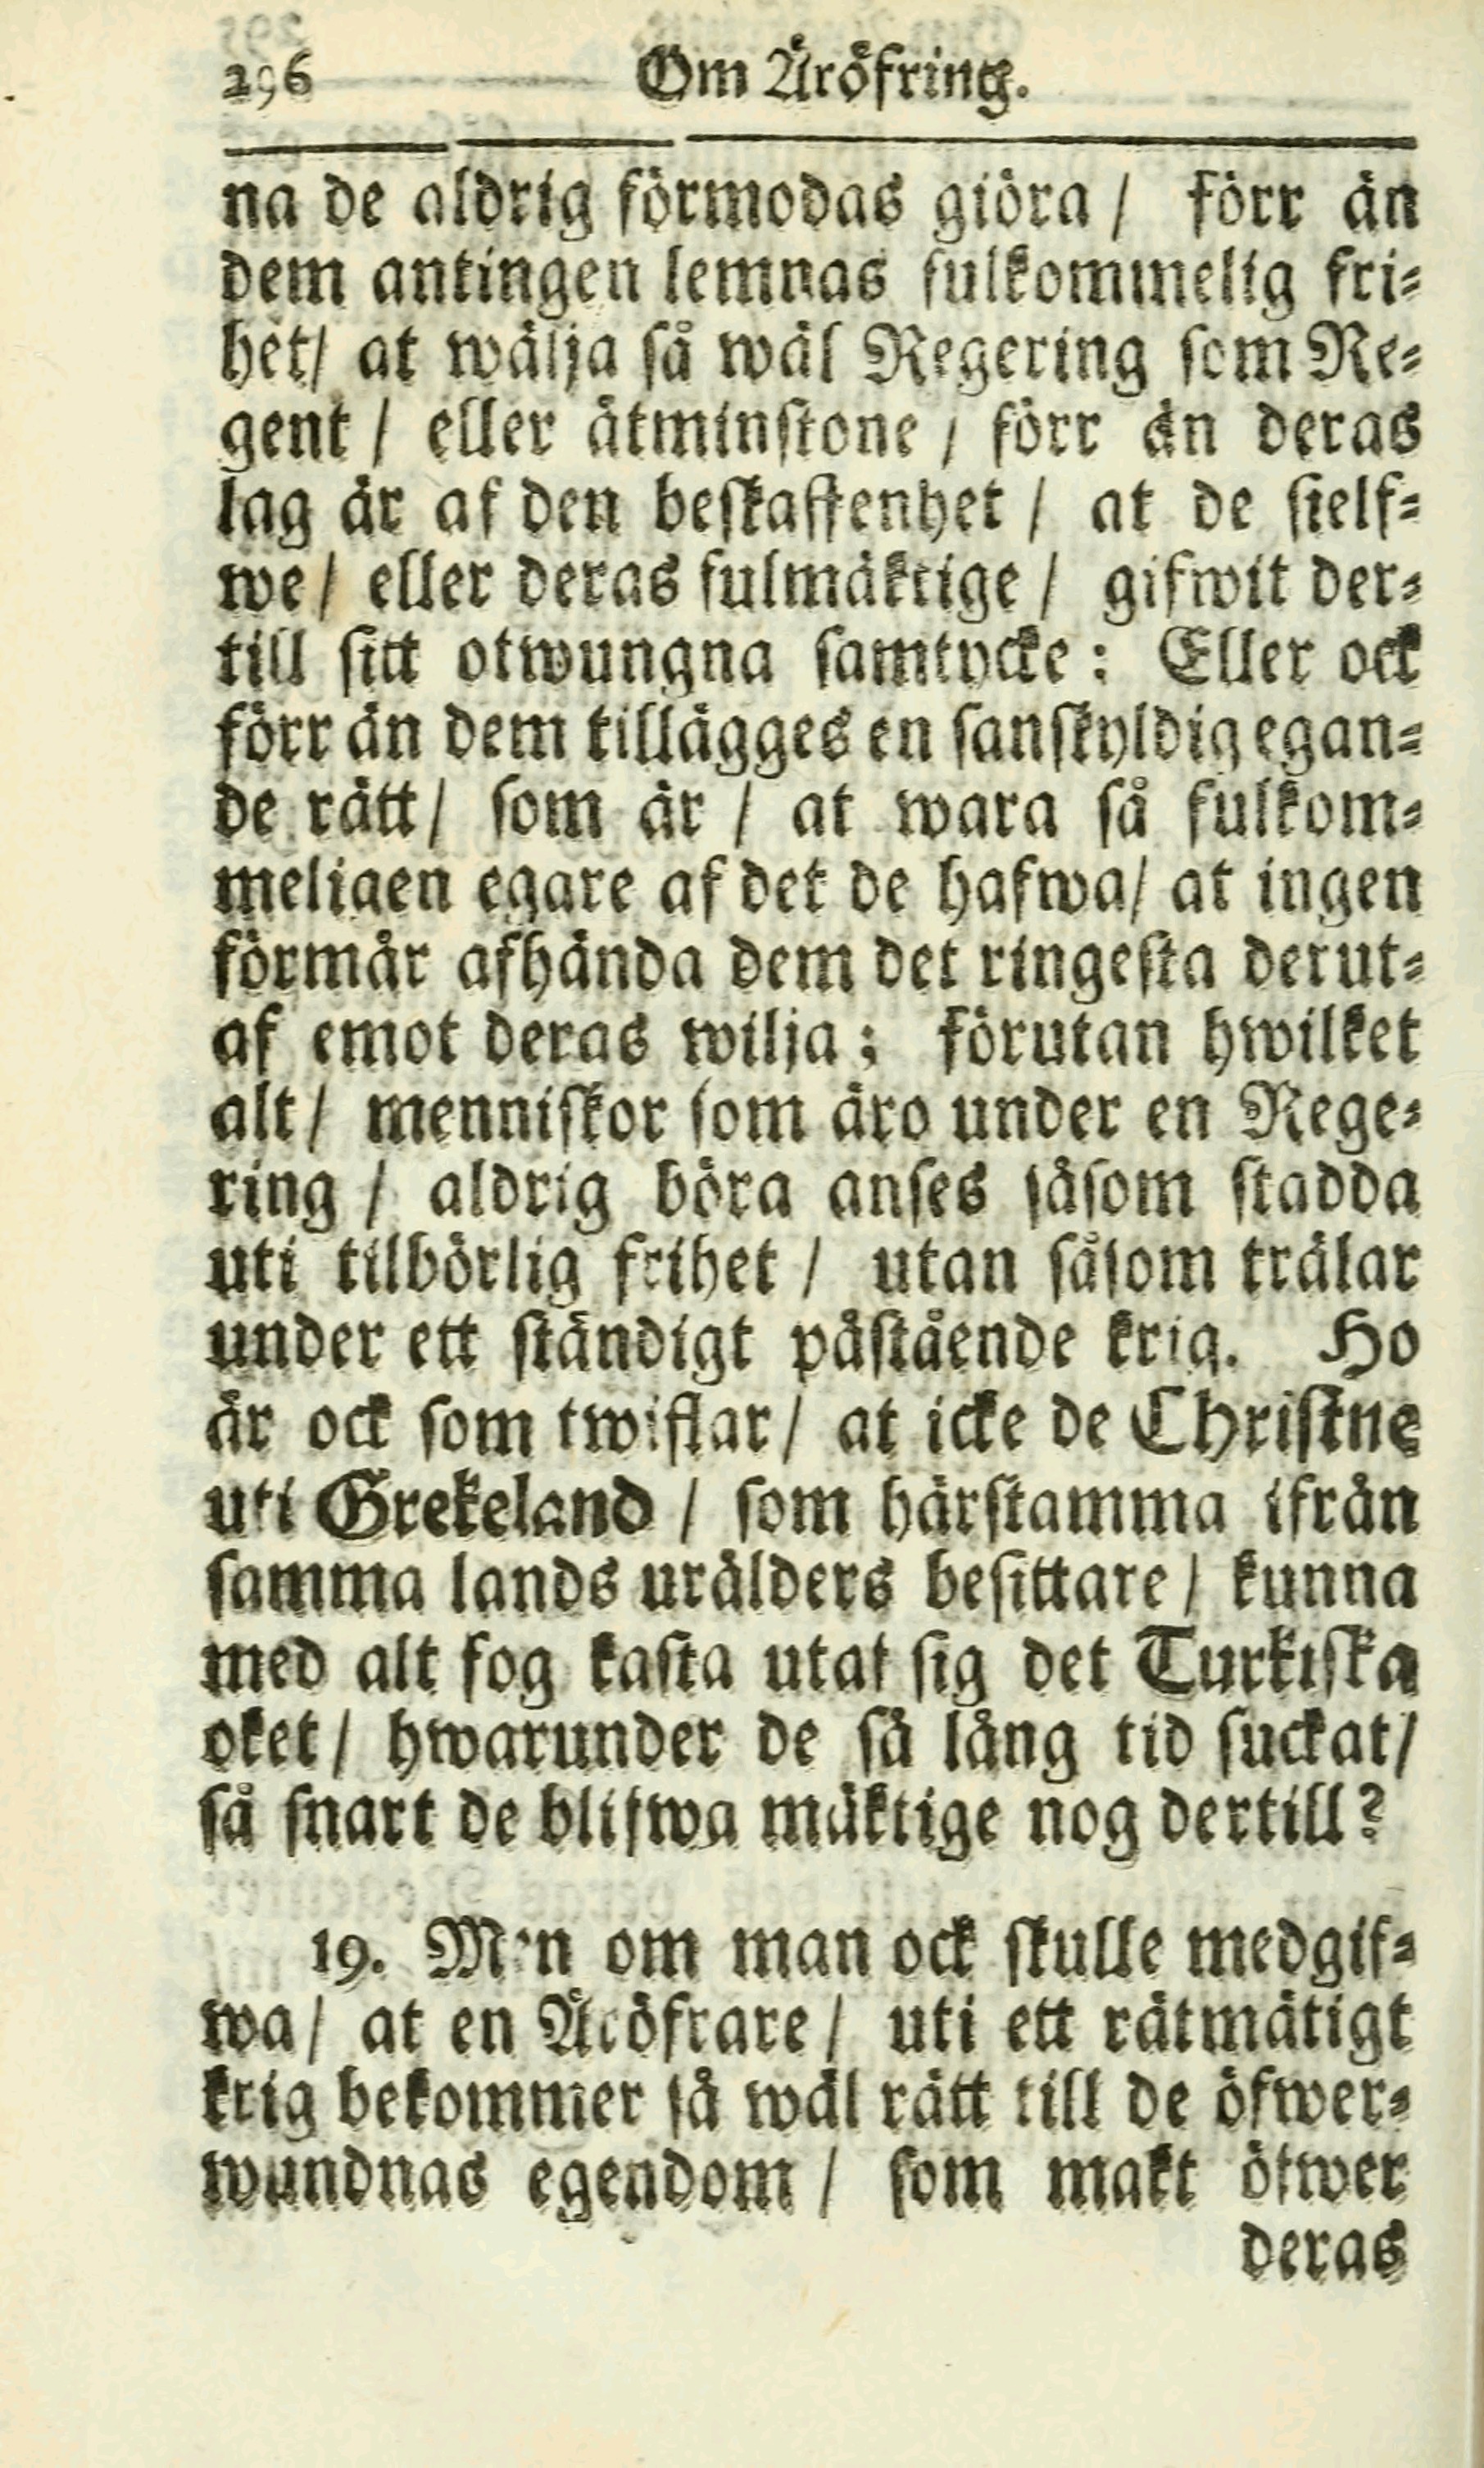 296 Om Äröfring.
na de aldrig förmodas giöra / förr än
dem antingen lemnas fulkommelig fri⸗
het/ at wälja så wäl Regering som Re⸗
gent / eller åtminstone / förr än deras
lag är af den beskaffenhet / at de sielf⸗
we / eller deras fulmäktige / gifwit der⸗
till sitt otwungna samtycke : Eller ock
förr än dem tillägges en sanskyldig egan⸗
de rätt/ som är / at wara så fulkom⸗
meligen egare af det de hafwa/ at ingen
förmår afhända dem det ringesta derut⸗
af emot deras wilja ; förutan hwilket
alt / menniskor som äro under en Rege⸗
ring / aldrig böra anses såsom stadda
uti tilbörlig frihet / utan såsom trälar
under ett ständigt påstående krig. Ho
är ock som twiflar / at icke de Christne
uti Grekeland / som härstamma ifrån
samma lands urålders besittare / kunna
med alt fog kasta utaf sig det Turkiska
oket / hwarunder de så lång tid suckat/
så snart de blifwa mäktige nog dertill?
19. Men om man ock skulle medgif⸗
wa / at en Äröfrare / uti ett rätmätigt
krig bekommer så wäl rätt till de öfwer⸗
wundnas egendom / som makt öfwer
deras